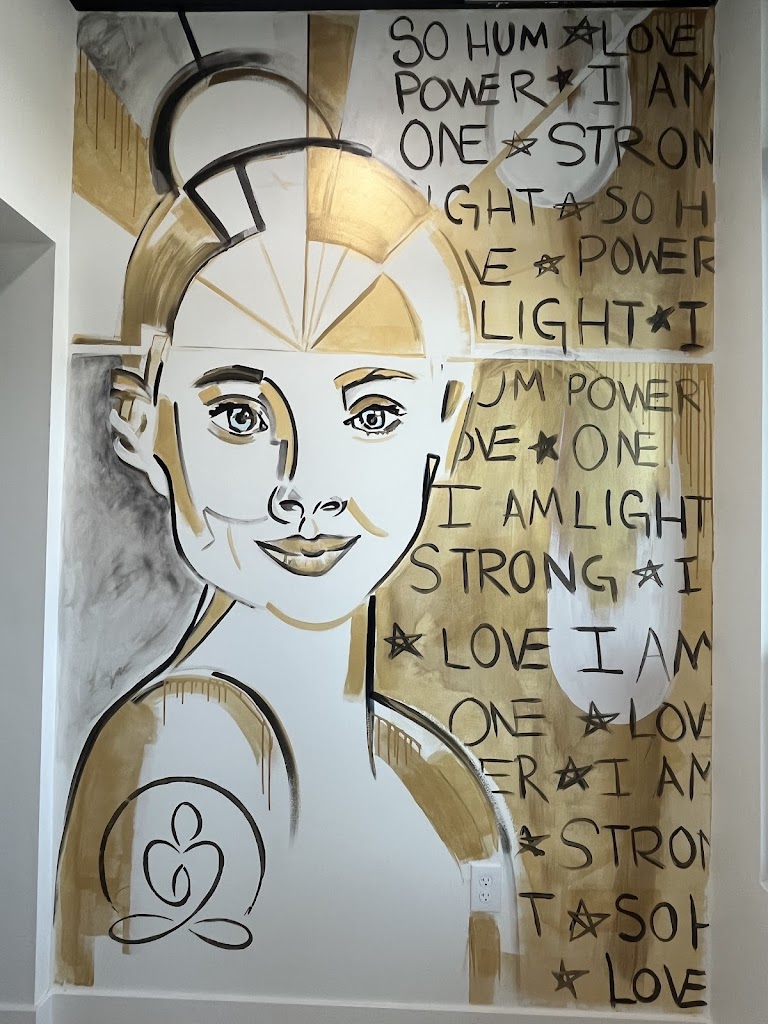 SO HUM ☆ LOVE
POWER ★ I AM
ONE ☆ STRON
IGHT ☆ SO H
VE ☆ POWER
LIGHT ★ I
UM POWER
OVE ★ ONE
I AM LIGHT
STRONG ☆ I
★ LOVE I AM
ONE ☆ LOV
ER ☆ I AM
★ STRON
T ☆ SO H
☆ LOVE